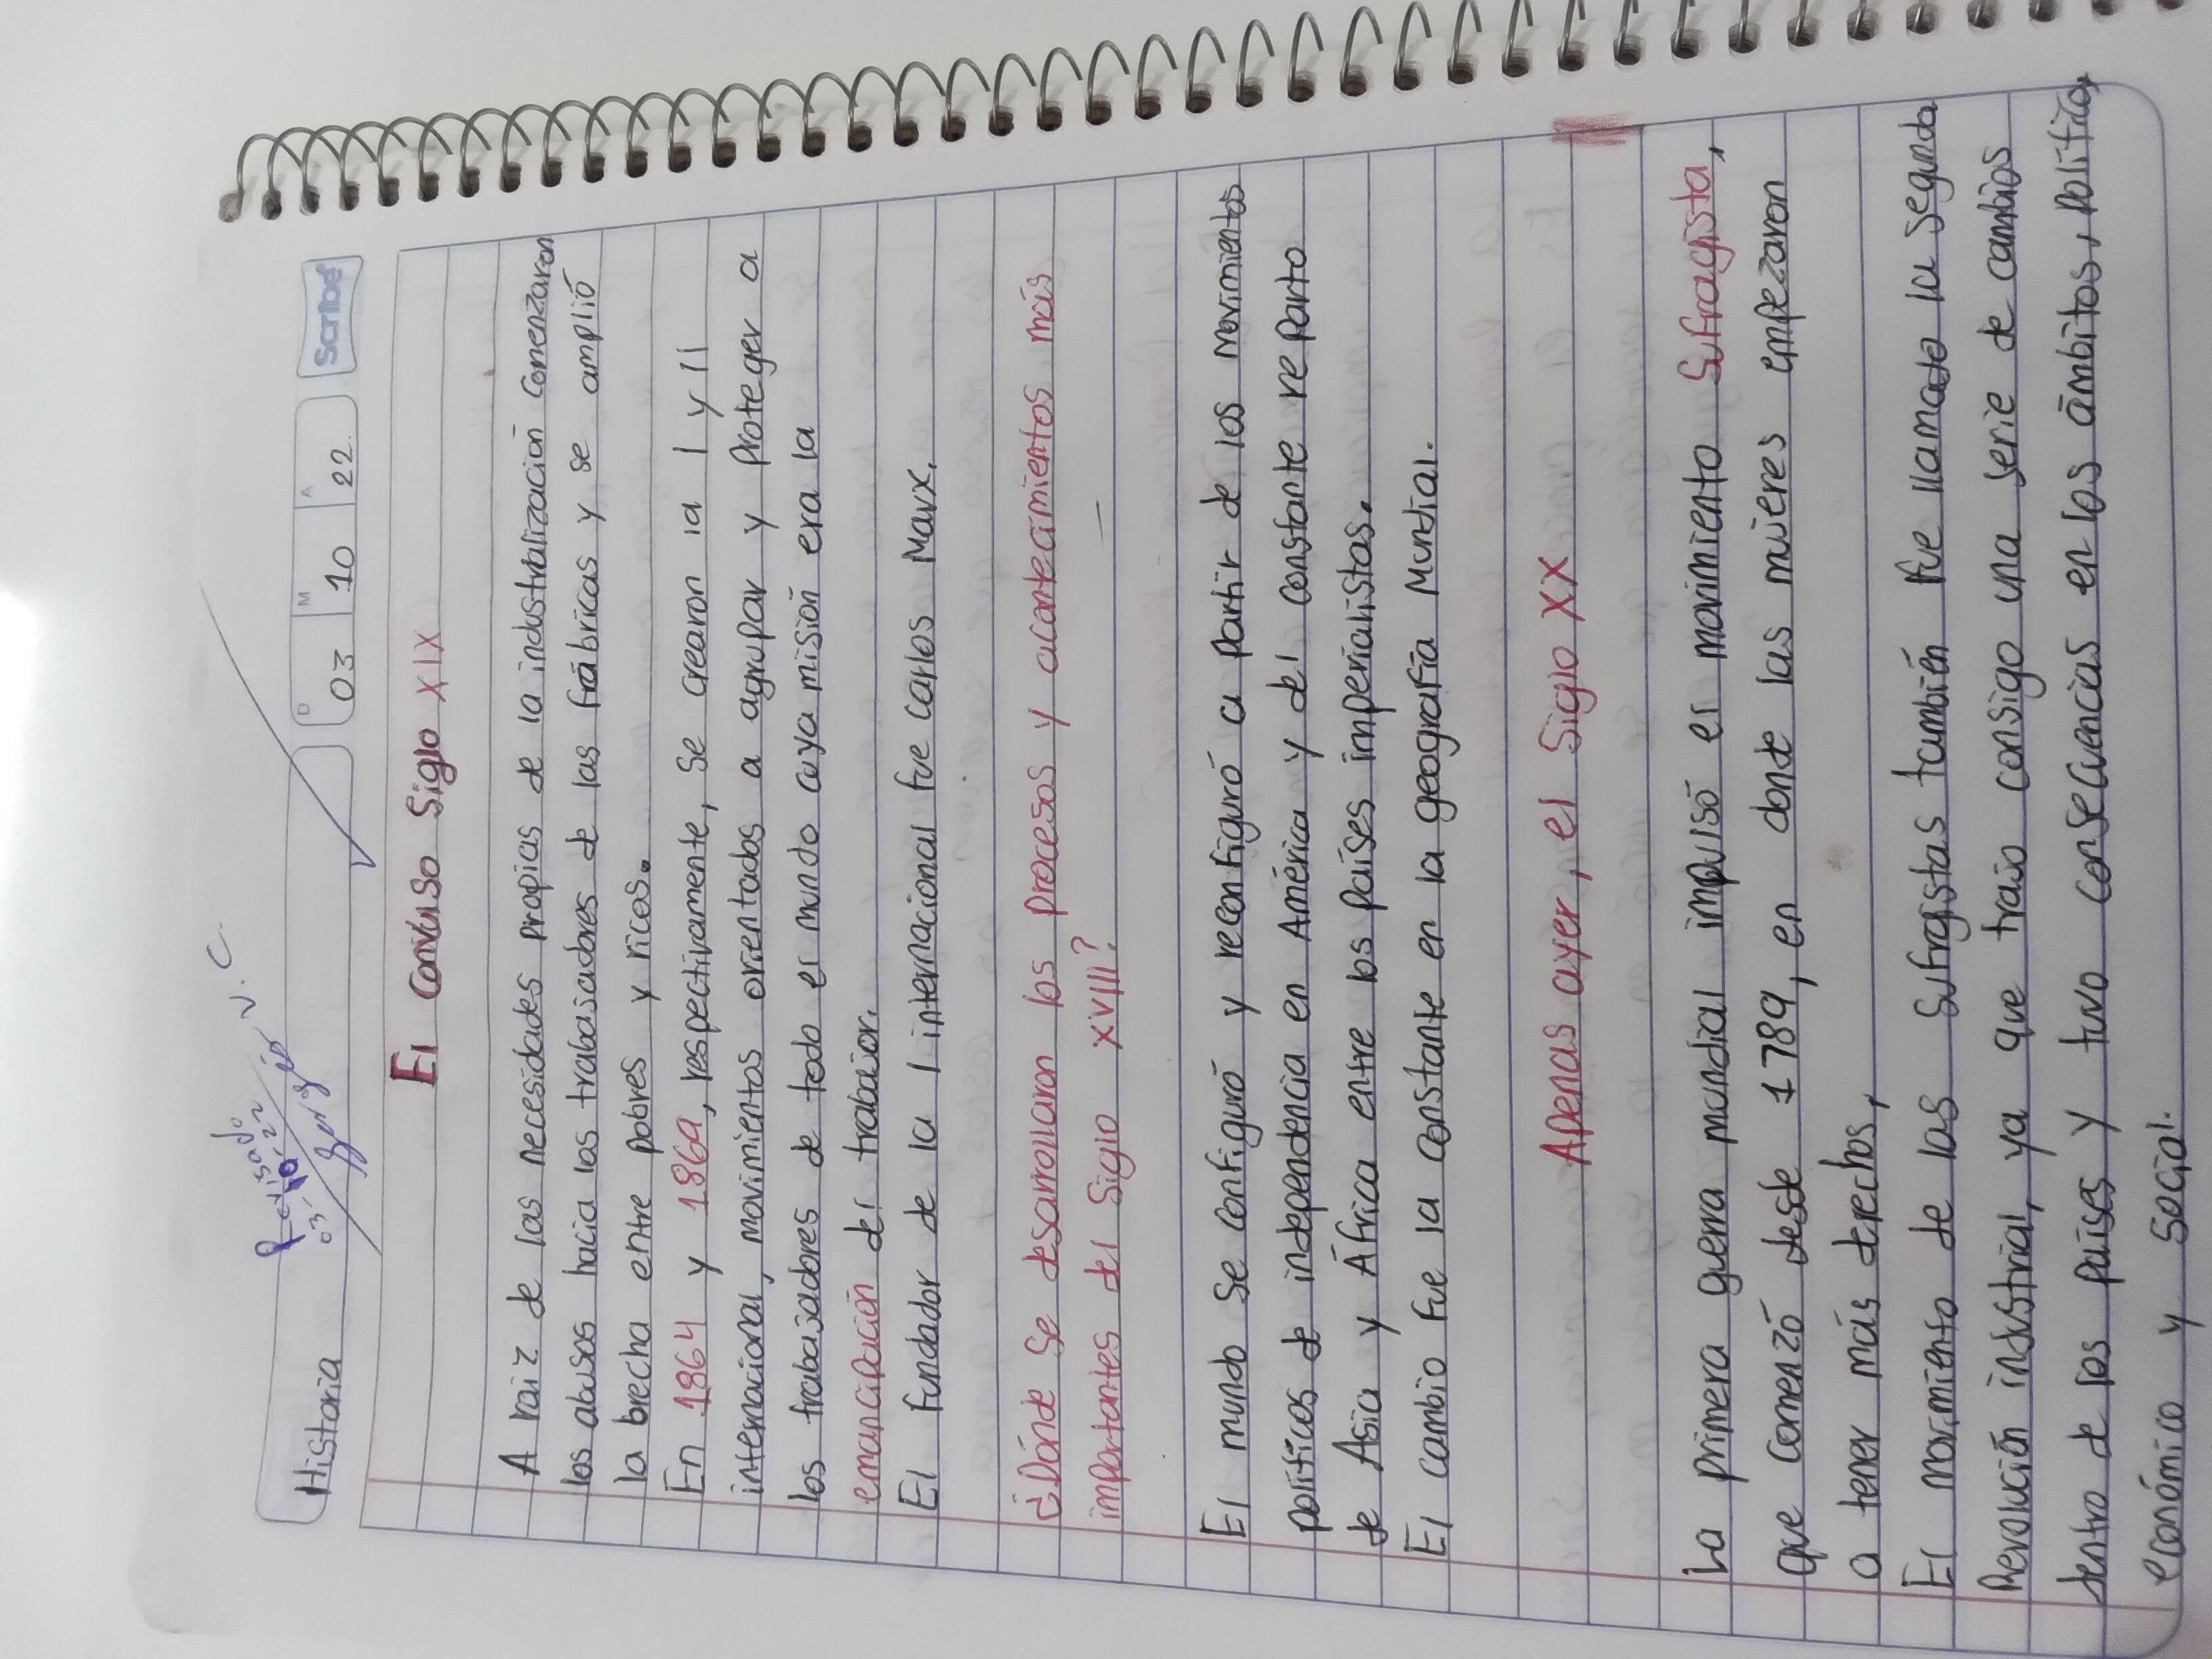 Revisado
03-10-22
V.C.
Historia
D 03 M 10 A 22
Scribe
El Convulso Siglo XIX
A raiz de las necesidades propias de la industralización comenzaron
los abusos hacia los trabajadores de las fábricas y se amplió
la brecha entre pobres y ricos.
En 1864 y 1869, respectivamente, se crearon la I y II
internacional, movimientos orientados a agrupar y proteger a
los trabajadores de todo el mundo cuya misión era la
emancipación del trabajor.
El fundador de la I internacional fue Carlos Marx.
¿Dónde se desarrollaron los procesos y acontecimientos más
importantes del Siglo XVIII?
El mundo se configuró y reconfiguró a partir de los movimientos
políticos de independencia en América y del constante reparto
de Asia y África entre los países imperialistas.
El cambio fue la constante en la geografía Mundial.
Apenas ayer, el Siglo XX
La primera guerra mundial impulsó el movimiento Sufragista,
que comenzó desde 1789, en donde las mujeres empezaron
a tener más derechos,
El movimiento de las Sufragistas también fue llamado la segunda
Revolución industrial, ya que trajo consigo una serie de cambios
dentro de los países y tuvo consecuencias en los ámbitos, político,
económico y social.